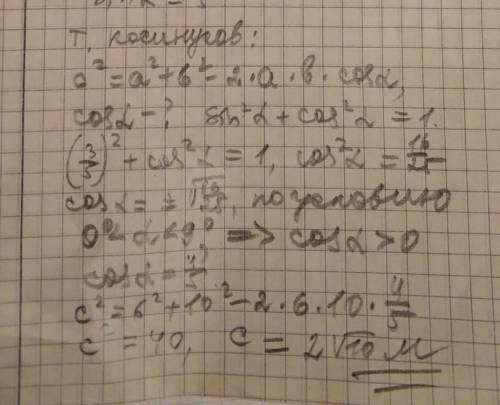 т. косинусов:
c² = a² + b² - 2 · a · b · cosα,
cosα - ? sin²α + cos²α = 1.
(3/5)² + cos²α = 1, cos²α = 16/25
cosα = ± √16/25, по условию
0° < α < 90° => cosα > 0
cosα = 4/5
c² = 6² + 10² - 2 · 6 · 10 · 4/5
c² = 40, c = 2√10 м